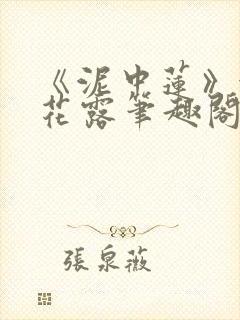 《泥中蓮》
花露筆趣閣
張泉薇